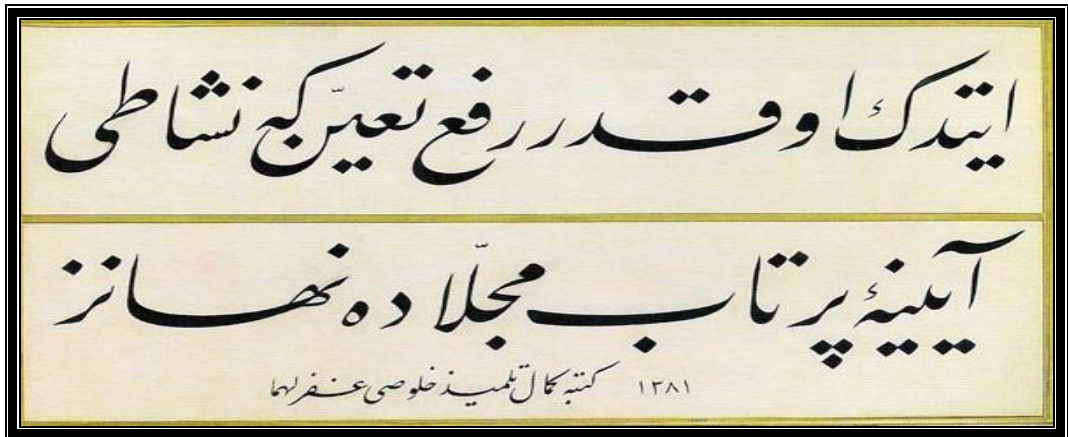 ایتدك او قدر رفع تعیّن که نشاطی
آیینهٔ پر تاب مجلّاده نهانز
کتبه کمال تلمیذ خلوصی غفر لهما ١٣٨١